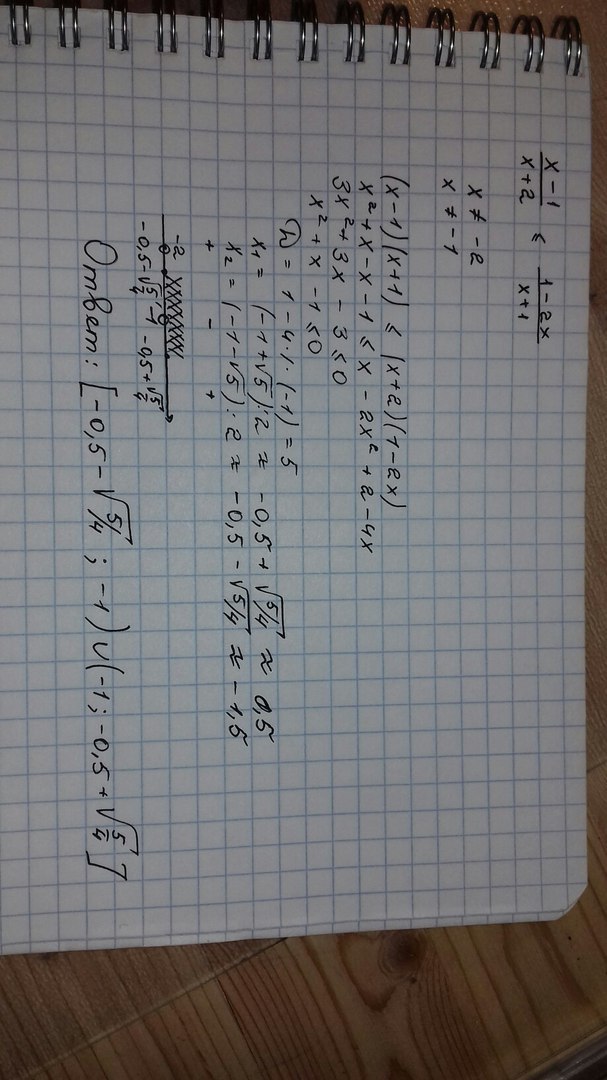 x-1/x+2 ≤ 1-2x/x+1
x ≠ -2
x ≠ -1
(x-1)(x+1) ≤ (x+2)(1-2x)
x²+x-x-1 ≤ x-2x²+2-4x
3x²+3x-3 ≤ 0
x²+x-1 ≤ 0
D = 1-4·1·(-1) = 5
x₁ = (-1+√5):2 = -0,5+√5/4 ≈ 0,5
x₂ = (-1-√5):2 = -0,5-√5/4 ≈ -1,5
+ - +
-2
-0,5-√5/4 -1 -0,5+√5/4
Ответ: [-0,5-√5/4; -1) ∪ (-1; -0,5+√5/4]